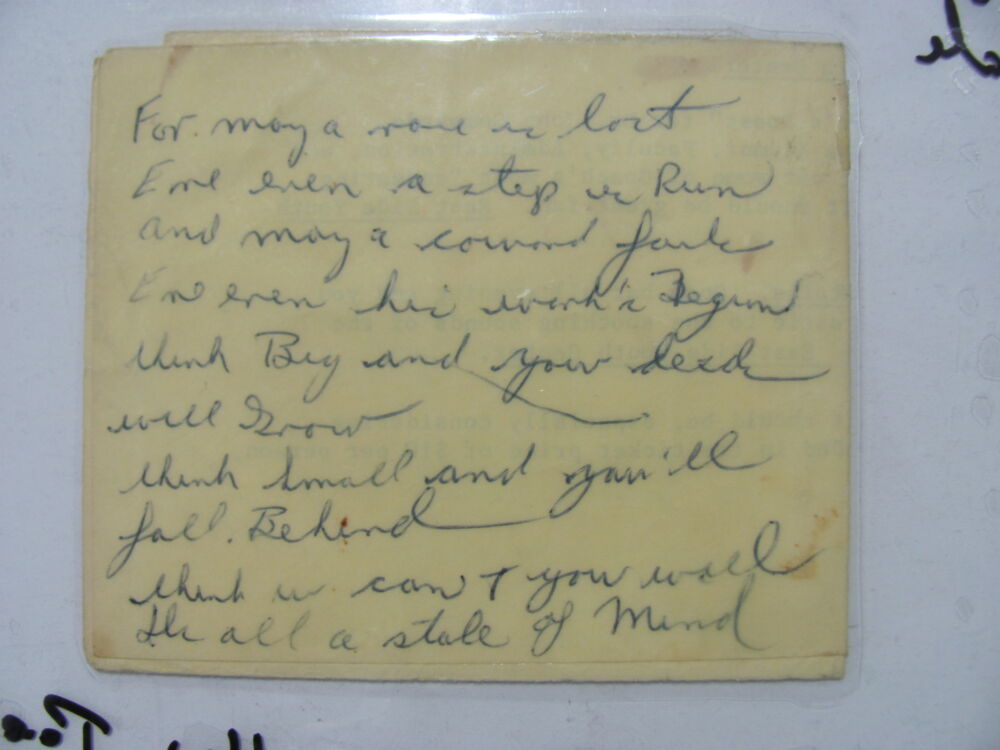 For many a race is lost
Ere even a step is Run
and many a coward fails
Ere even his work's Begun
think Big and your deeds
will Grow
think small and you'll
fall. Behind
think u can + you will
Its all a state of Mind